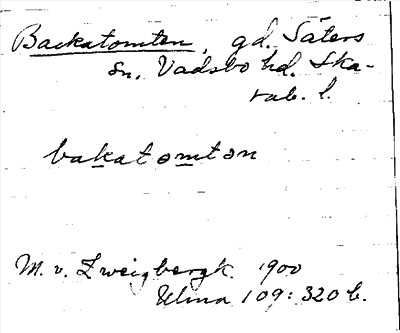 Backatomten, gd. Säters
sn, Vadsbo hd. Ska-
rab. l.
bakatomtən
M. v. Zweigbergk. 1900
Ulma 109: 320 b.